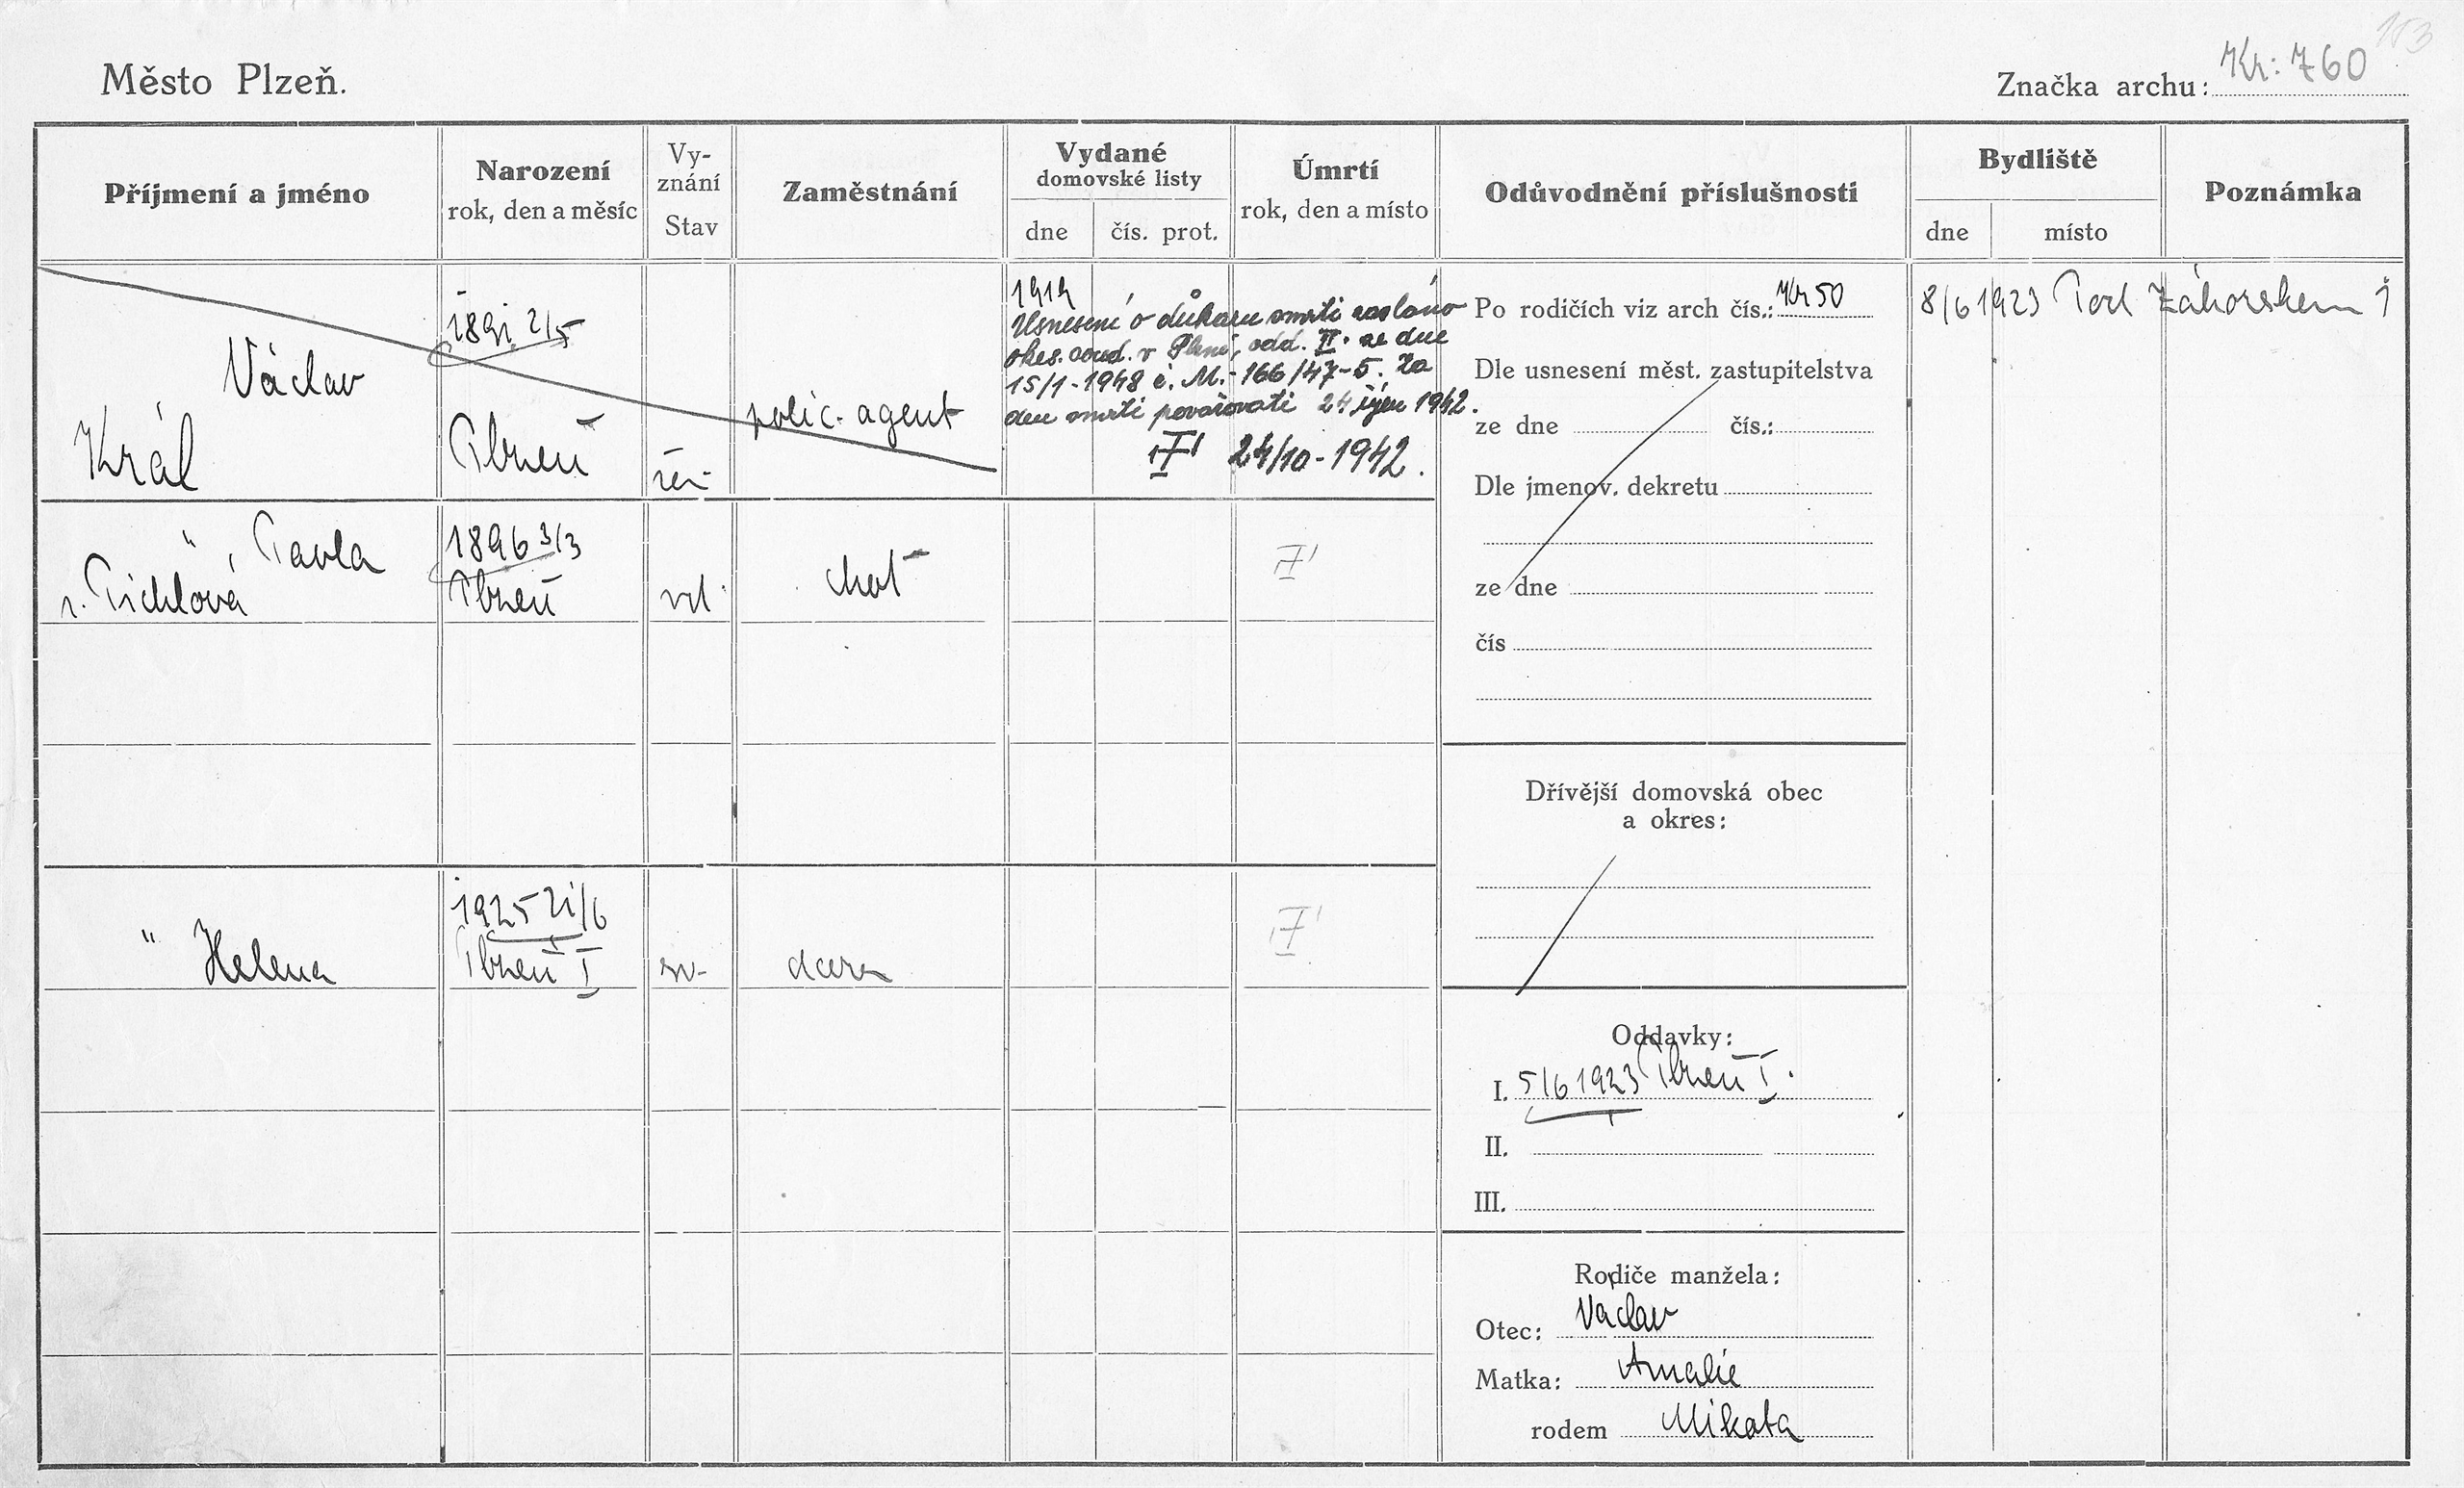 153
Město Plzeň.
Značka archu: Kr: 760
Příjmení a jméno
Narození
rok, den a měsíc
Vy-
znání
Stav
Zaměstnání
Vydané
domovské listy
dne
čís. prot.
Úmrtí
rok, den a místo
Odůvodnění příslušnosti
Bydliště
dne
místo
Poznámka
Václav
Král
1891 2/5
Plzeň
žen.
polic. agent
1919
Usnesení o důkazu smrti zasláno
okres. soud. v Plzni, odd. II. ze dne
15/1-1948 č. M.-166/47-5. Za
den smrti považovati 24 říjen 1942.
24/10-1942.
Po rodičích viz arch čís.: Kr 50
Dle usnesení měst. zastupitelstva
ze dne
čís.:
Dle jmenov. dekretu
ze dne
čís
8/6 1923 Pod Záhorskem 1
" , Pavla
r. Pichlová
1896 3/3
Plzeň
vd.
choť
Dřívější domovská obec
a okres:
" Helena
1925 21/6
Plzeň I
sv.
dcera
Oddavky:
I. 5/6 1923 Plzeň I.
II.
III.
Rodiče manžela:
Otec: Václav
Matka: Amalie
rodem Mikota